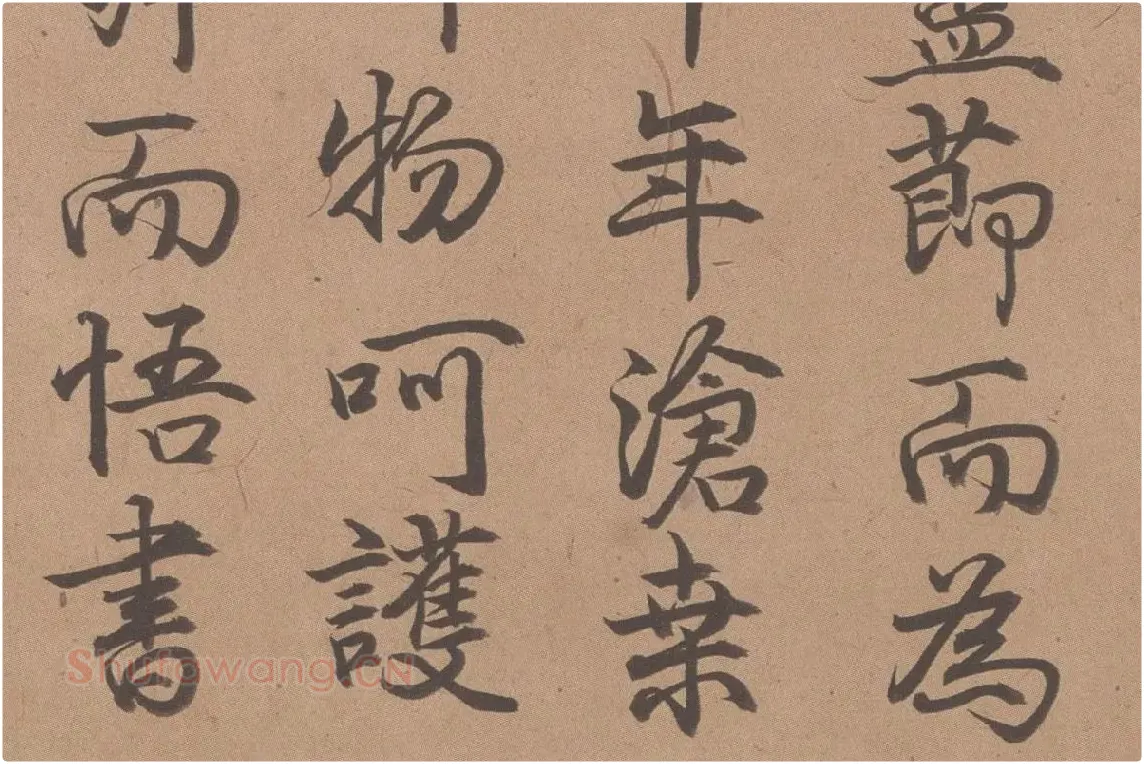 盖節而為
年滄桒
物呵護
而悟書
Shufawang.CN